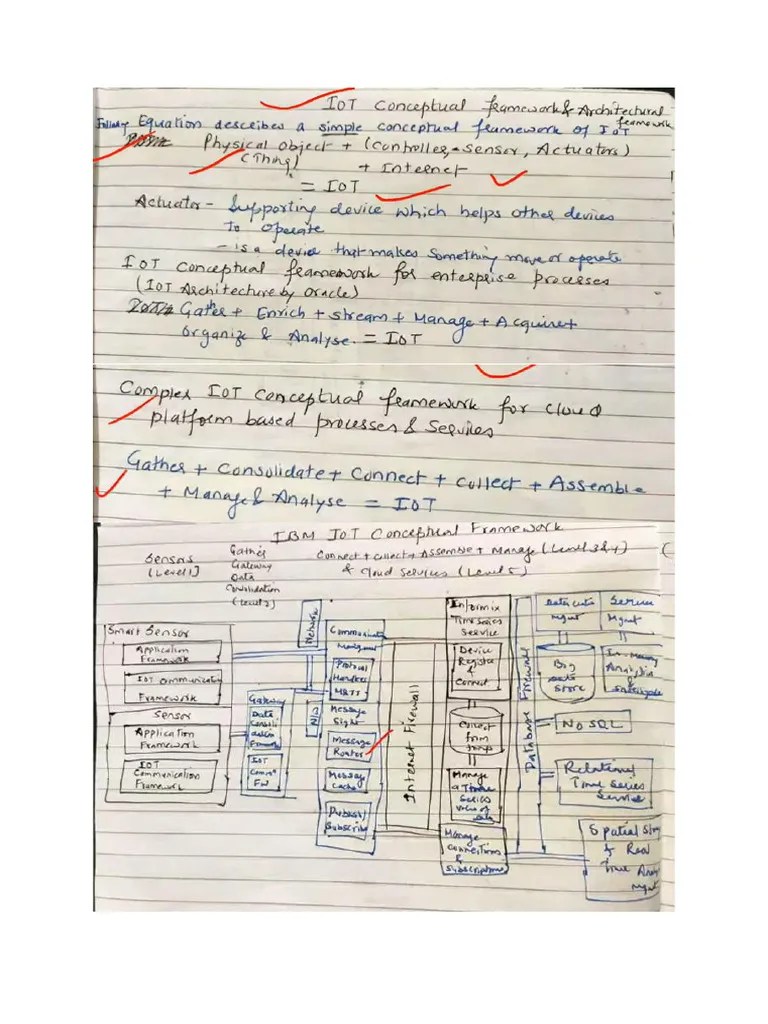 IOT Conceptual framework & Architectural
framework
Following Equation describes a simple conceptual framework of IoT
Physical Object + (Controller, Sensor, Actuators)
(Thing) + Internet
= IOT
Actuator - Supporting device which helps other devices
To operate
- is a device that makes something move or operate
IOT Conceptual framework for enterprise processes
(IOT Architecture by Oracle)
Gather + Enrich + stream + Manage + Acquire +
organize & Analyse = IOT
Complex IOT conceptual framework for cloud
platform based processes & Services
Gather + Consolidate + Connect + Collect + Assemble
+ Manage & Analyse = IOT
IBM IOT Conceptual Framework
Sensors
(Level 1)
Gather
Gateway
Data
Consolidation
(Level 2)
Connect + Collect + Assemble + Manage (Level 3&4)
& Cloud Services (Level 5)
Smart Sensor
Application
Framework
IOT Communication
Framework
Sensor
Application
Framework
IOT
Communication
Framework
Gateway
Data
Framework
IOT
Network
N/B
Protocol
Handler
MQTT
Message
Sight
Message
Router
Message
Cache
Publish/
Subscribe
Internet Firewall
Informix
Time Series
Service
Device
Register
&
Connect
Collect
from
Manage
a Time
Series
view of
Data
Manage
Connections
&
Subscriptions
Database Firewall
Mgmt
Mgmt
Big
data
Store
Analytics
&
NO SQL
Relational
Time Series
Service
Spatial
& Real
Time
Mgmt